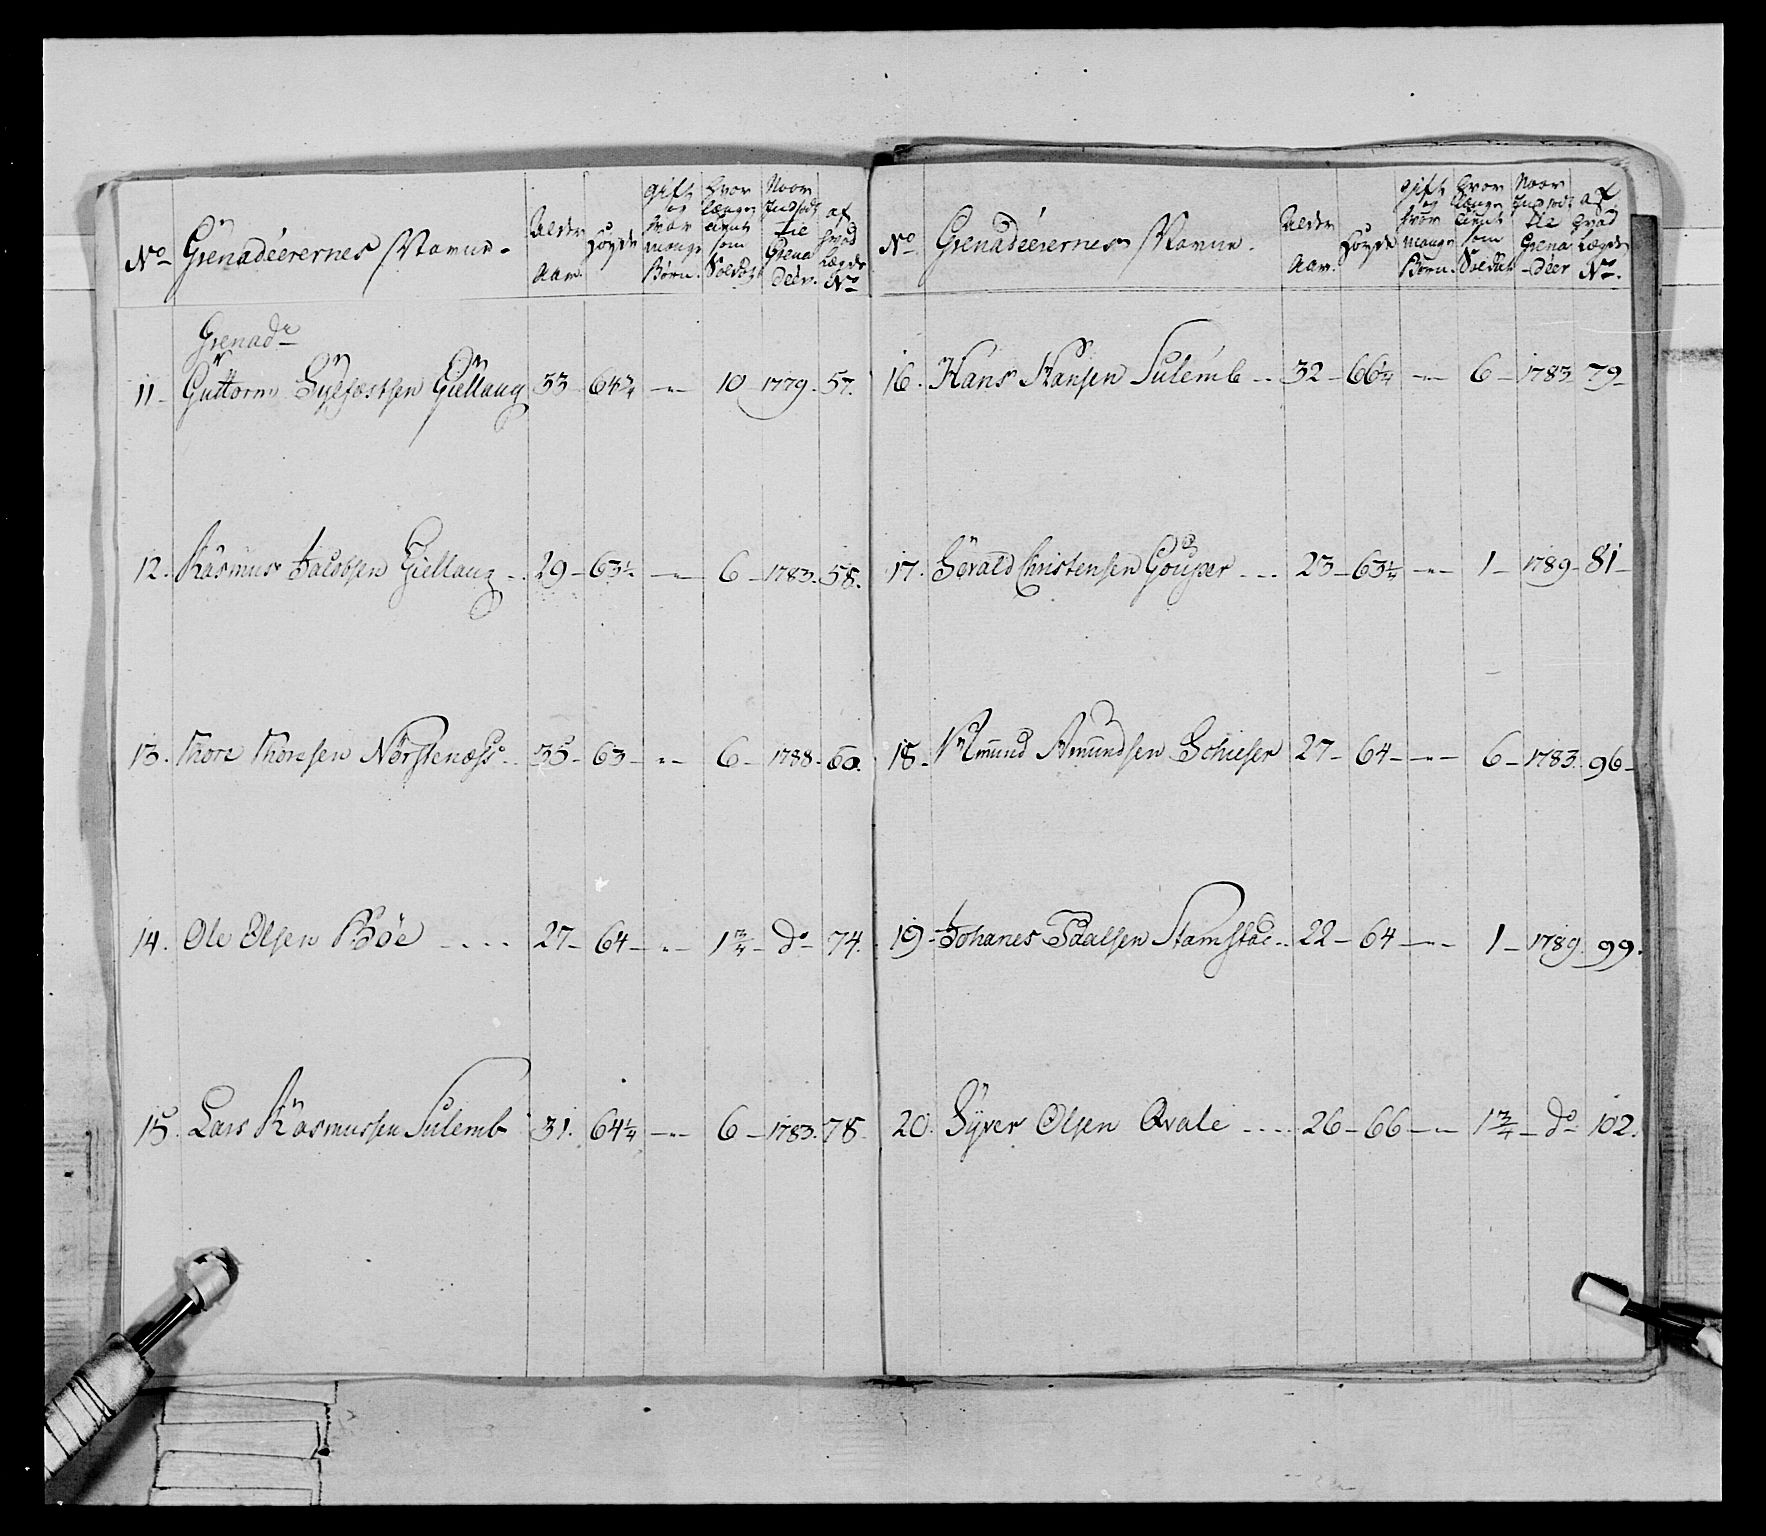 No Grenadéerernes Navne. Alder Aar. Høyde gift og hvor mange Børn. hvor længe tient som Soldat Naar Indsadt til Grenadéer. af hvad Lægds No
Grenadr
11 Guttorm Syefastsen Giellang 33 64 3/4 -"- 10 1779. 57.
12. Rasmus Jacobsen Giellang .. 29 63 1/2 -"- 6 1783. 58.
13. Thore Thoresen Norstenæss .. 35 63 -"- 6 1788. 60.
14. Ole Olsen Böe .... 27 64 -"- 1 3/4 do 74.
15. Lars Rasmussen Sulemb 31. 64 1/4 -"- 6 1783. 78.
No Grenadéerernes Navne. Alder Aar. Høyde gift og hvor mange Børn. hvor længe tient som Soldat Naar Indsadt til Grenadéer af hvad Lægds No.
16. Hans Hansen Sulemb .. 32 66 1/4 -"- 6 1783 79
17. Sövald Christensen Gouper ... 23 63 1/4 -"- 1 1789 81
18. Amund Amundsen Schieser 27 64 -"- 6 1783. 96
19 Johanes Paalsen Stamstad .. 22 64 -"- 1 1789. 99.
20. Syver Olsen Qvale .... 26 66 -"- 1 3/4 do 102.